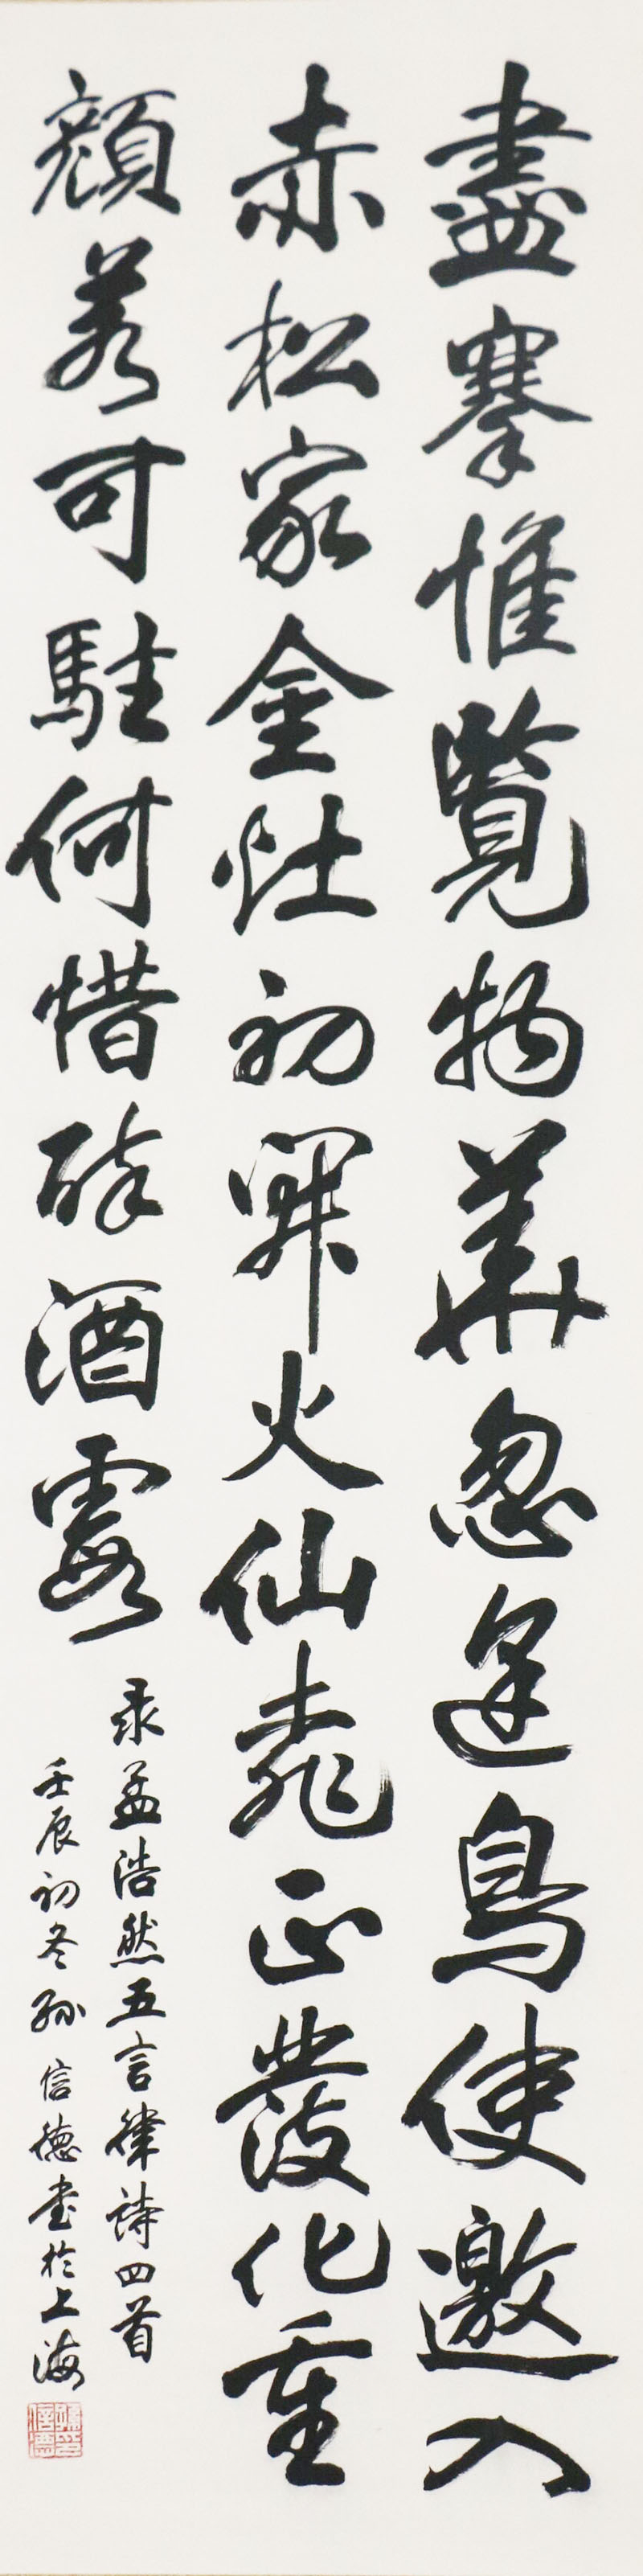 盡搴惟覽物華忽逢鳥使邀入
赤松家金灶初開火仙桃正發化重
顏若可駐何惜醉酒霞
录孟浩然五言律詩四首
壬辰初冬孫信德書於上海
孫印信德